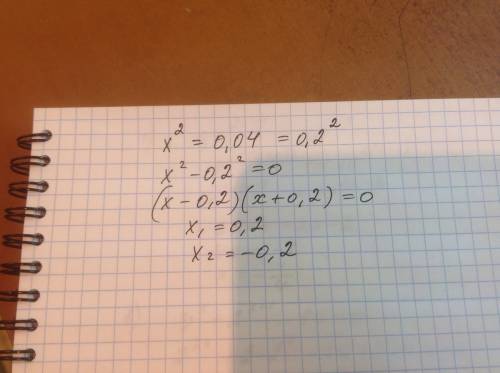 x² = 0,04 = 0,2²
x² - 0,2² = 0
(x - 0,2)(x + 0,2) = 0
x₁ = 0,2
x₂ = -0,2